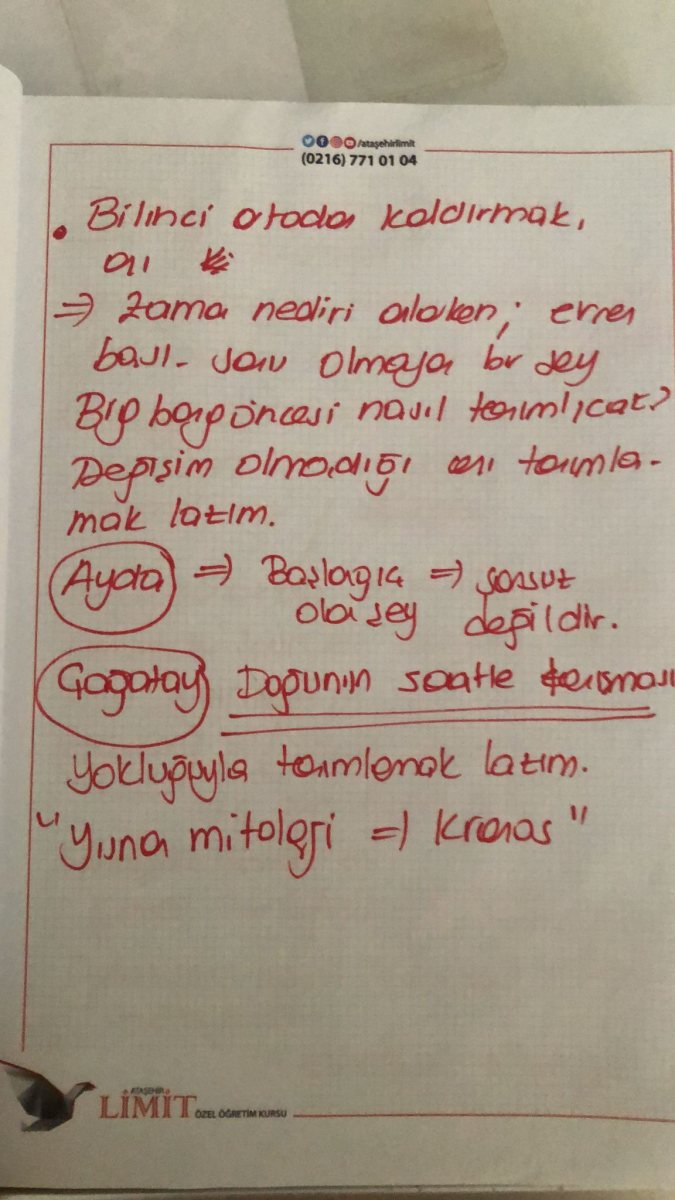 /ataşehirlimit
(0216) 771 01 04
• Bilinci ortada kaldırmak,
anı
⇒ Zama nediri alırken; evren
başı- sonu olmaya bir şey
Big bang öncesi nasıl tanımlıcat?
Değişim olmadığı anı tanımla-
mak lazım.
Ayda ⇒ Başlagıç ⇒ sonsuz
ola şey değildir.
Çağatay Doğunın saatle tanışması
yokluğuyla tanımlamak lazım.
"Yuna mitoloji ⇒ Kronos"
ATAŞEHİR
LİMİT ÖZEL ÖĞRETİM KURSU